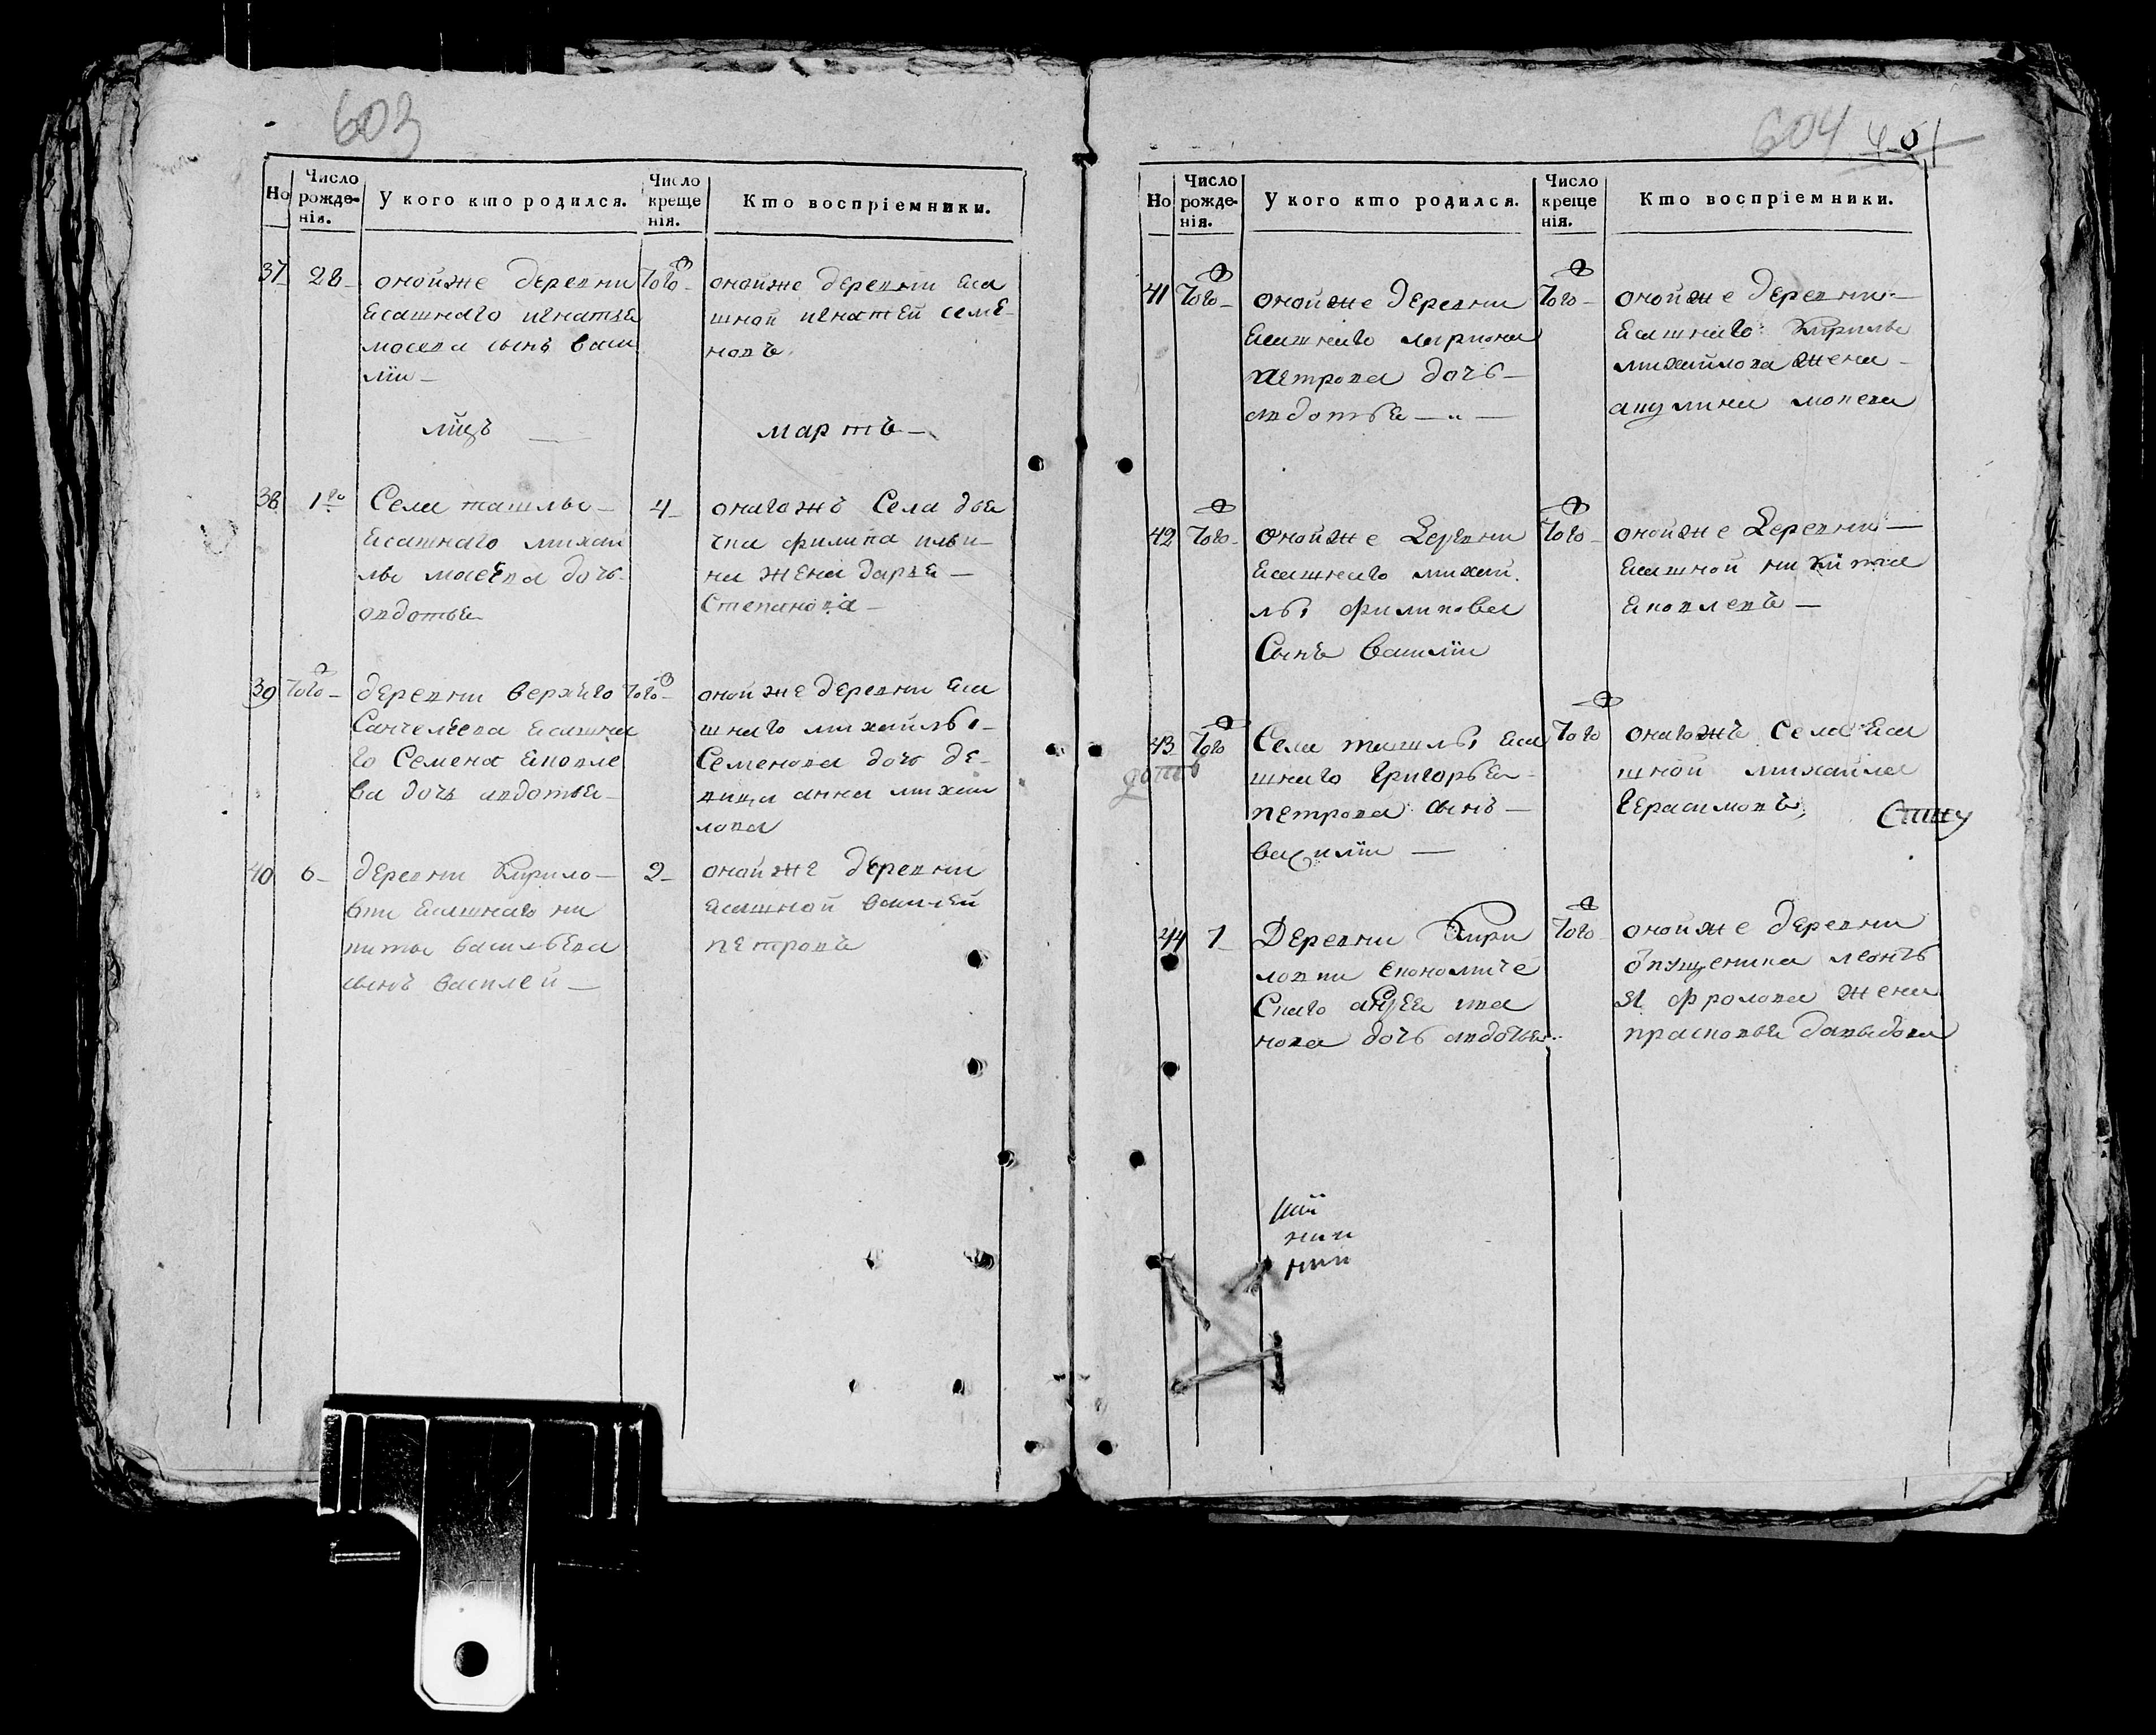 603
Но
Число рожденія.
У кого кто родился.
Число крещенія.
Кто воспріемники.
37
28
оной же деревни
Ясашнаго игнатья
мосева сынъ васи
лїи
Того
оной же деревни Яса
шной игнатей семе-
новъ
мцъ
мартъ
38
1го
Села ташлы
Ясашнаго михаи
лы мосеева дочь
овдотья
4
онагожъ Села дья
чка филипа ильи-
на жена дарья
Степанова
39
Того
деревни верхнго
Санчелеева Ясашна
го Семена Яковле
ва дочь авдотья
Того
оной же деревни Яса
шнаго михайлы
Семенова дочь де-
вица анна михаи
лова
40
6
деревни Кирило-
вки Ясашнаго ни
киты васильева
сынъ василей
2
оной же деревни
Ясашной василей
петровъ
604
401
Но
Число рожденія.
У кого кто родился.
Число крещенія.
Кто воспріемники.
41
Того
оной же деревни
Ясашнаго лариона
петрова дочь
авдотья
Того
оной же деревни
Ясашнаго Кирилы
михайлова жена
акулина
42
Того
оной же Деревни
Ясашнаго михаи
лы филипова
Сынъ василїи
Того
оной же Деревни
Ясашной никита
Яковлевъ
43
Того
Села ташлы Яса
шнаго Григорья
петрова сынъ
василїи
Того
онагожъ Села Яса
шной михайла
Герасимовъ
44
7
Деревни Кири
ловки Економиче
Скаго андрея ива
нова дочь авдотья
Того
оной же деревни
отпущеника леонть
Я фролова жена
прасковья давыдова
ний